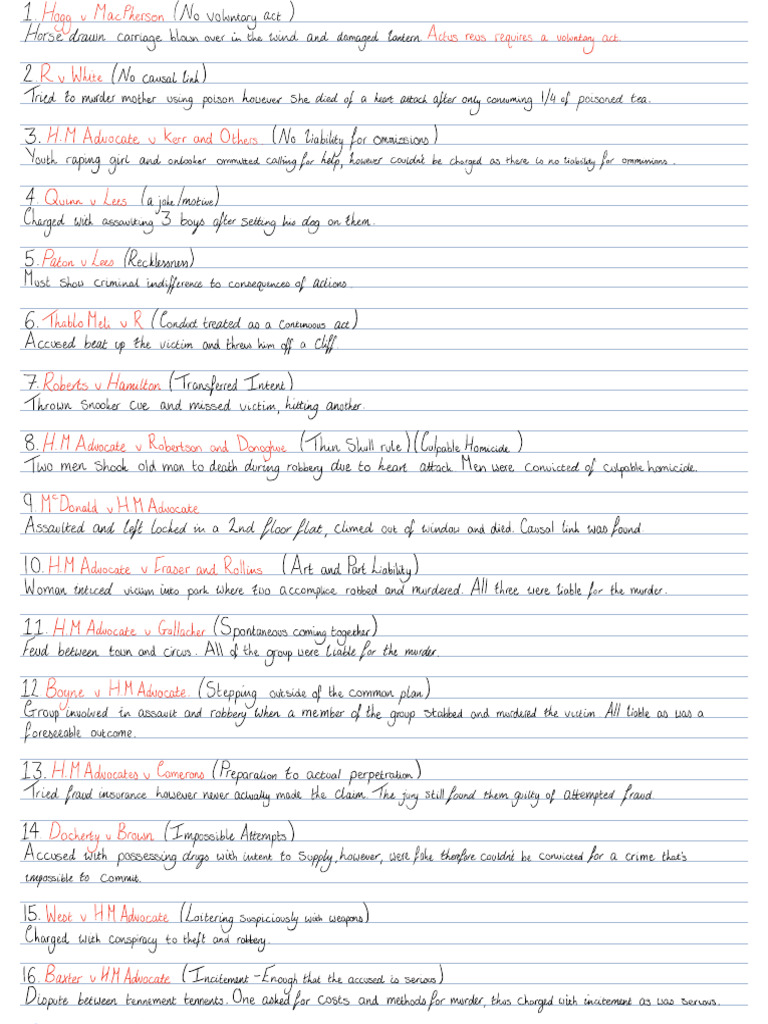 1. Hogg v MacPherson (No voluntary act)
Horse drawn carriage blown over in the wind and damaged lantern. Actus reus requires a voluntary act.
2. R v White (No causal link)
Tried to murder mother using poison however she died of a heart attack after only consuming 1/4 of poisoned tea.
3. H.M Advocate v Kerr and Others (No liability for ommissions)
Youth raping girl and onlooker ommitted calling for help, however couldn't be charged as there is no liability for ommissions.
4. Quinn v Lees (a joke/motive)
Charged with assaulting 3 boys after setting his dog on them.
5. Paton v Lees (Recklessness)
Must show criminal indifference to consequences of actions.
6. Thablo Meli v R (Conduct treated as a continuous act)
Accused beat up the victim and threw him off a cliff.
7. Roberts v Hamilton (Transferred Intent)
Thrown snooker cue and missed victim, hitting another.
8. H.M Advocate v Robertson and Donoghue (Thin Skull rule) (Culpable Homicide)
Two men shook old man to death during robbery due to heart attack Men were convicted of culpable homicide.
9. McDonald v H M Advocate
Assaulted and left locked in a 2nd floor flat, climed out of window and died. Causal link was found.
10. H.M Advocate v Fraser and Rollins (Art and Part Liability)
Woman inticed victim into park where two accomplice robbed and murdered. All three were liable for the murder.
11. H.M Advocate v Gallacher (Spontaneous coming together)
Feud between town and circus. All of the group were liable for the murder.
12 Boyne v H M Advocate. (Stepping outside of the common plan)
Group involved in assault and robbery when a member of the group stabbed and murdered the victim All liable as was a
foreseeable outcome.
13. H.M Advocates v Camerons (Preparation to actual perpetration)
Tried fraud insurance however never actually made the claim. The jury still found them guilty of attempted fraud.
14. Docherty v Brown (Impossible Attempts)
Accused with possessing drugs with intent to supply, however, were fake therefore couldn't be convicted for a crime that's
impossible to commit.
15. West v H M Advocate (Loitering suspiciously with weapons)
Charged with conspiracy to theft and robbery.
16. Baxter v H M Advocate (Incitement - Enough that the accused is serious)
Dispute between tennement tennents. One asked for costs and methods for murder, thus charged with incitement as was serious.